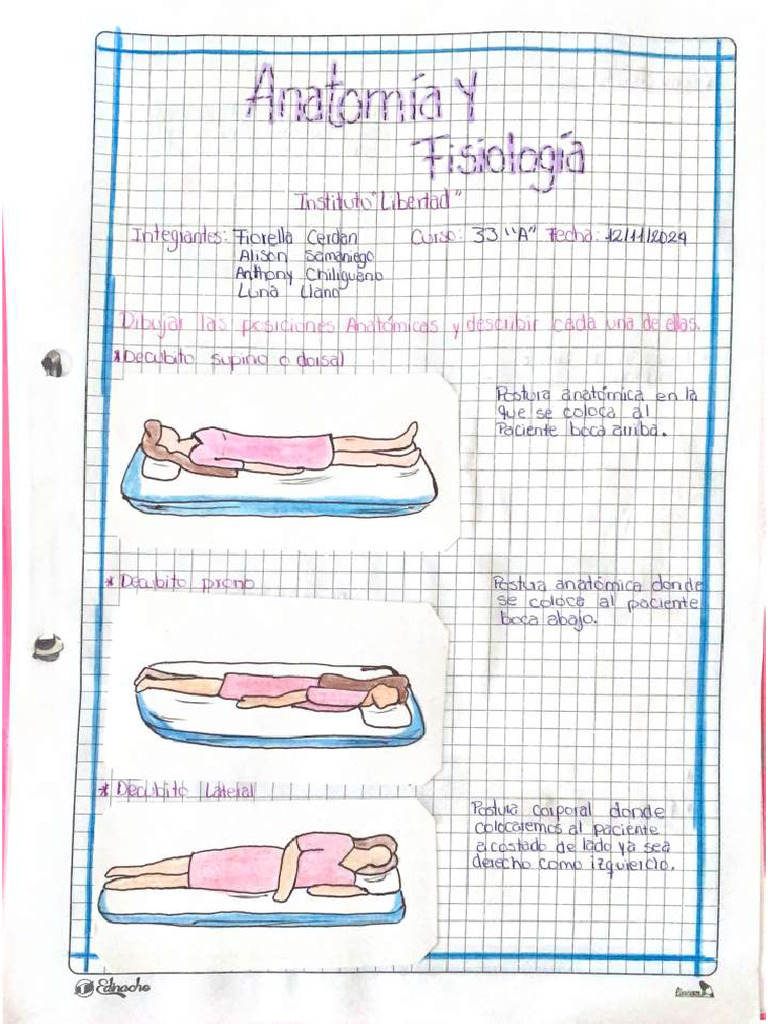 Anatomía Y
Fisiología
Instituto "Libertad"
Integrantes: Fiorella Cerdan Curso: 33 "A" Fecha: 12/11/2024
Alison Samaniego
Anthony Chiliguano
Luna Llano
Dibujar las posiciones Anatómicas y describir cada una de ellas.
*Decubito supino o dorsal
Postura anatómica en la
que se coloca al
Paciente boca arriba.
* Decubito prono
Postura anatómica donde
se coloca al paciente
boca abajo.
* Decubito Lateral
Postura corporal donde
colocaremos al paciente
acostado de lado ya sea
derecho como izquierdo.
Ednacho